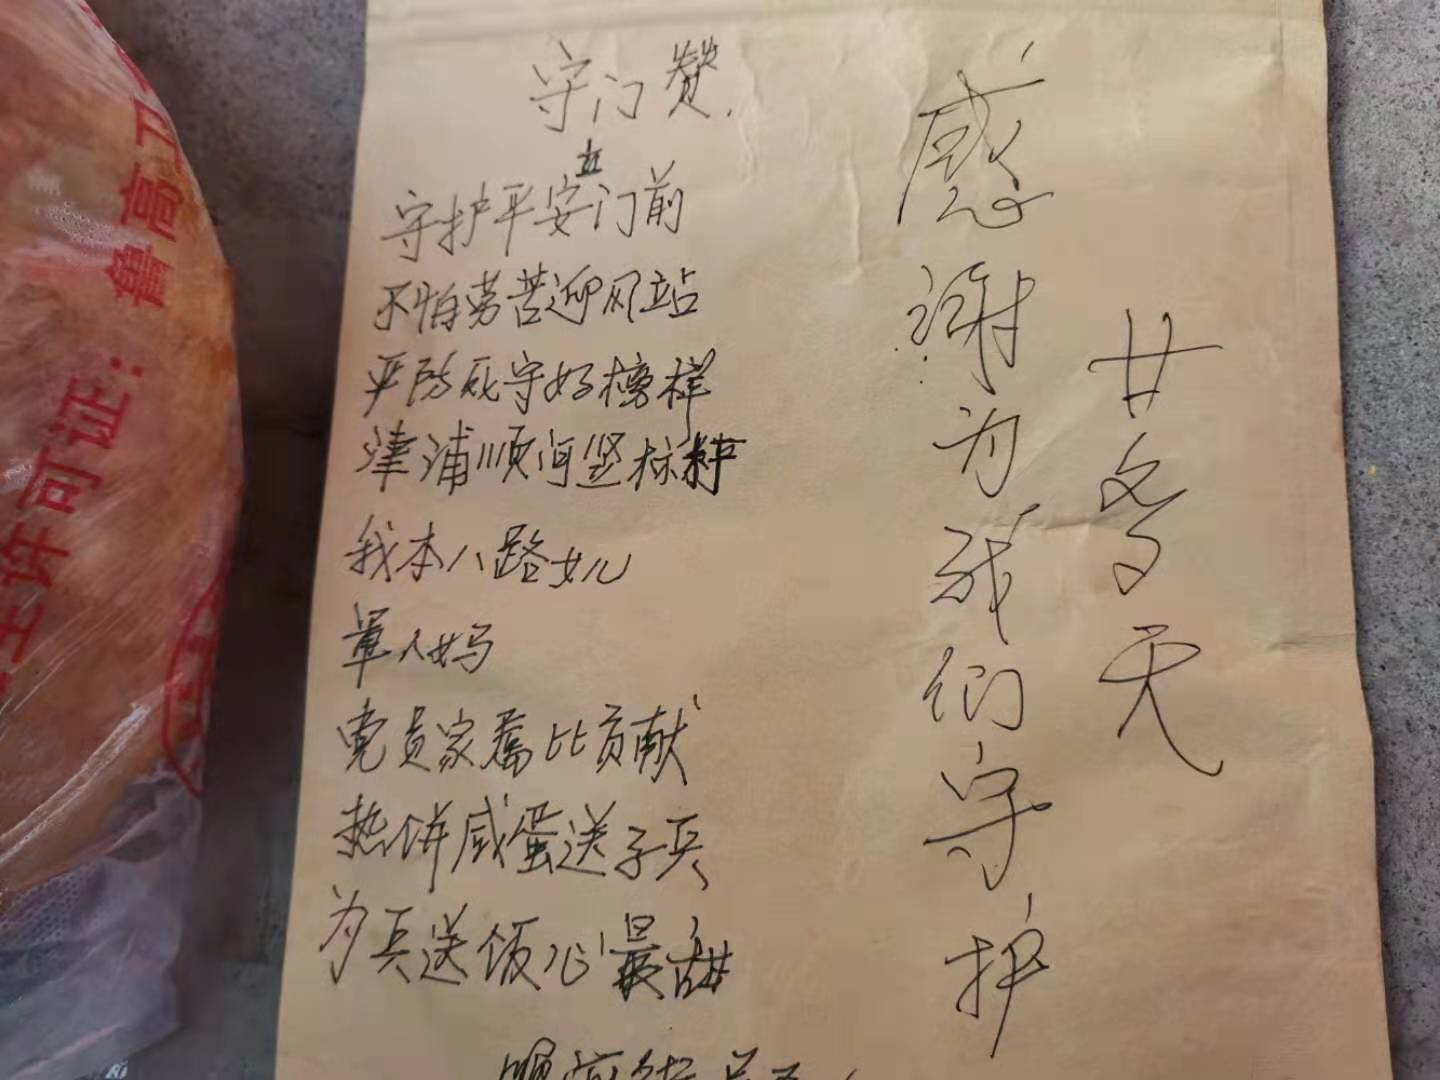 守门赞
守护平安立门前
不怕劳苦迎风站
严防死守好榜样
津浦顺河竖标杆
我本八路女儿
军人妈
党员家属比贡献
热饼咸蛋送子兵
为兵送饭心最甜
感谢为我们守护
廿多天
鲁高卫
生许可证：